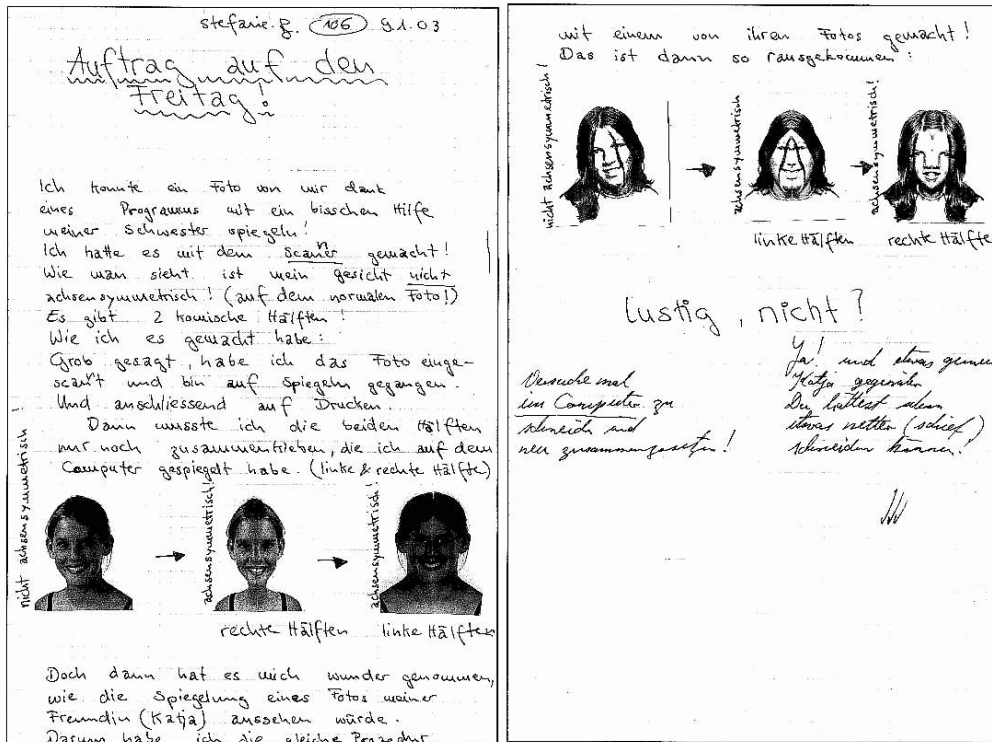 stefanie. g. 106 9.1.03
Auftrag auf den
Freitag!
Ich konnte ein Foto von mir dank
eines Programms mit ein bisschen Hilfe
meiner Schwester spiegeln!
Ich hatte es mit dem Scanner gemacht!
Wie man sieht ist mein gesicht nicht
achsensymmetrisch! (auf dem normalen Foto!)
Es gibt 2 komische Hälften!
Wie ich es gemacht habe:
Grob gesagt, habe ich das Foto einge-
scannt und bin auf Spiegeln gegangen.
Und anschliessend auf Drucken.
Dann musste ich die beiden Hälften
nur noch zusammenkleben, die ich auf dem
Computer gespiegelt habe. (linke & rechte Hälfte)
nicht achsensymmetrisch
achsensymmetrisch!
achsensymmetrisch!
rechte Hälften linke Hälften
Doch dann hat es mich wunder genommen,
wie die Spiegelung eines Fotos meiner
Freundin (Katja) aussehen würde.
Darum habe ich die gleiche Prozedur
mit einem von ihren Fotos gemacht!
Das ist dann so rausgekommen:
nicht achsensymmetrisch!
achsensymmetrisch
achsensymmetrisch!
linke Hälften rechte Hälften
lustig, nicht?
Versuche mal
im Computer zu
schneiden und
neu zusammenzusetzen!
Ja! und etwas gemein
Katja gegenüber
Du hättest eben
etwas netter (schief)
schneiden können!